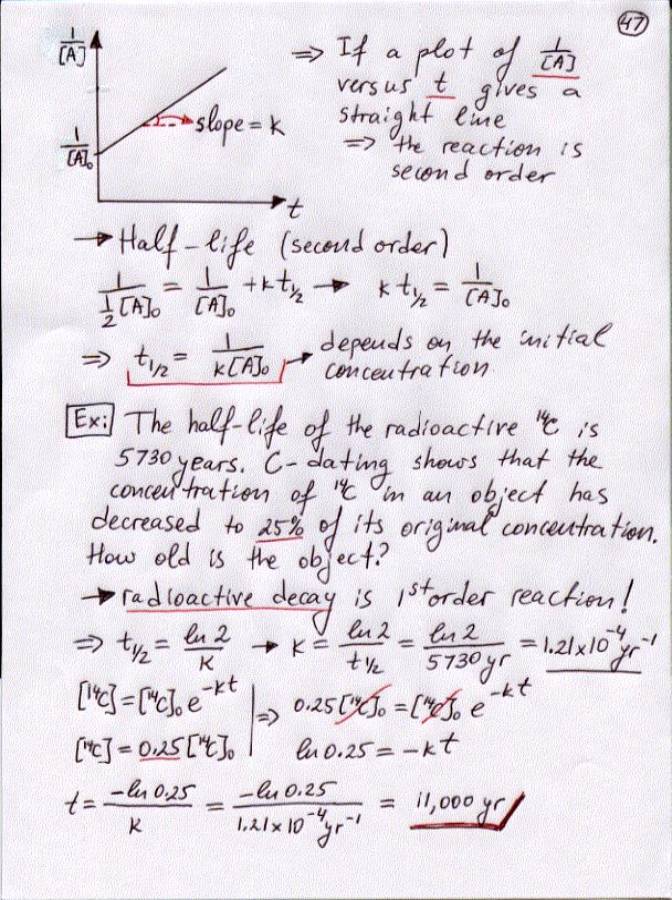 47
1/[A]
⇒ If a plot of 1/[A]
versus t gives a
straight line
⇒ the reaction is
second order
slope = k
1/[A]₀
t
→ Half-life (second order)
1/(½[A]₀) = 1/[A]₀ + kt₁/₂ → kt₁/₂ = 1/[A]₀
⇒ t₁/₂ = 1/(k[A]₀) → depends on the initial
concentration
Ex: The half-life of the radioactive ¹⁴C is
5730 years. C-dating shows that the
concentration of ¹⁴C in an object has
decreased to 25% of its original concentration.
How old is the object?
→ radioactive decay is 1st order reaction!
⇒ t₁/₂ = ln 2/k → k = ln 2/t₁/₂ = ln 2/5730 yr = 1.21x10⁻⁴ yr⁻¹
[¹⁴C] = [¹⁴C]₀ e⁻ᵏᵗ
⇒ 0.25[¹⁴C]₀ = [¹⁴C]₀ e⁻ᵏᵗ
[¹⁴C] = 0.25[¹⁴C]₀
ln 0.25 = -kt
t = -ln 0.25/k = -ln 0.25/1.21x10⁻⁴ yr⁻¹ = 11,000 yr